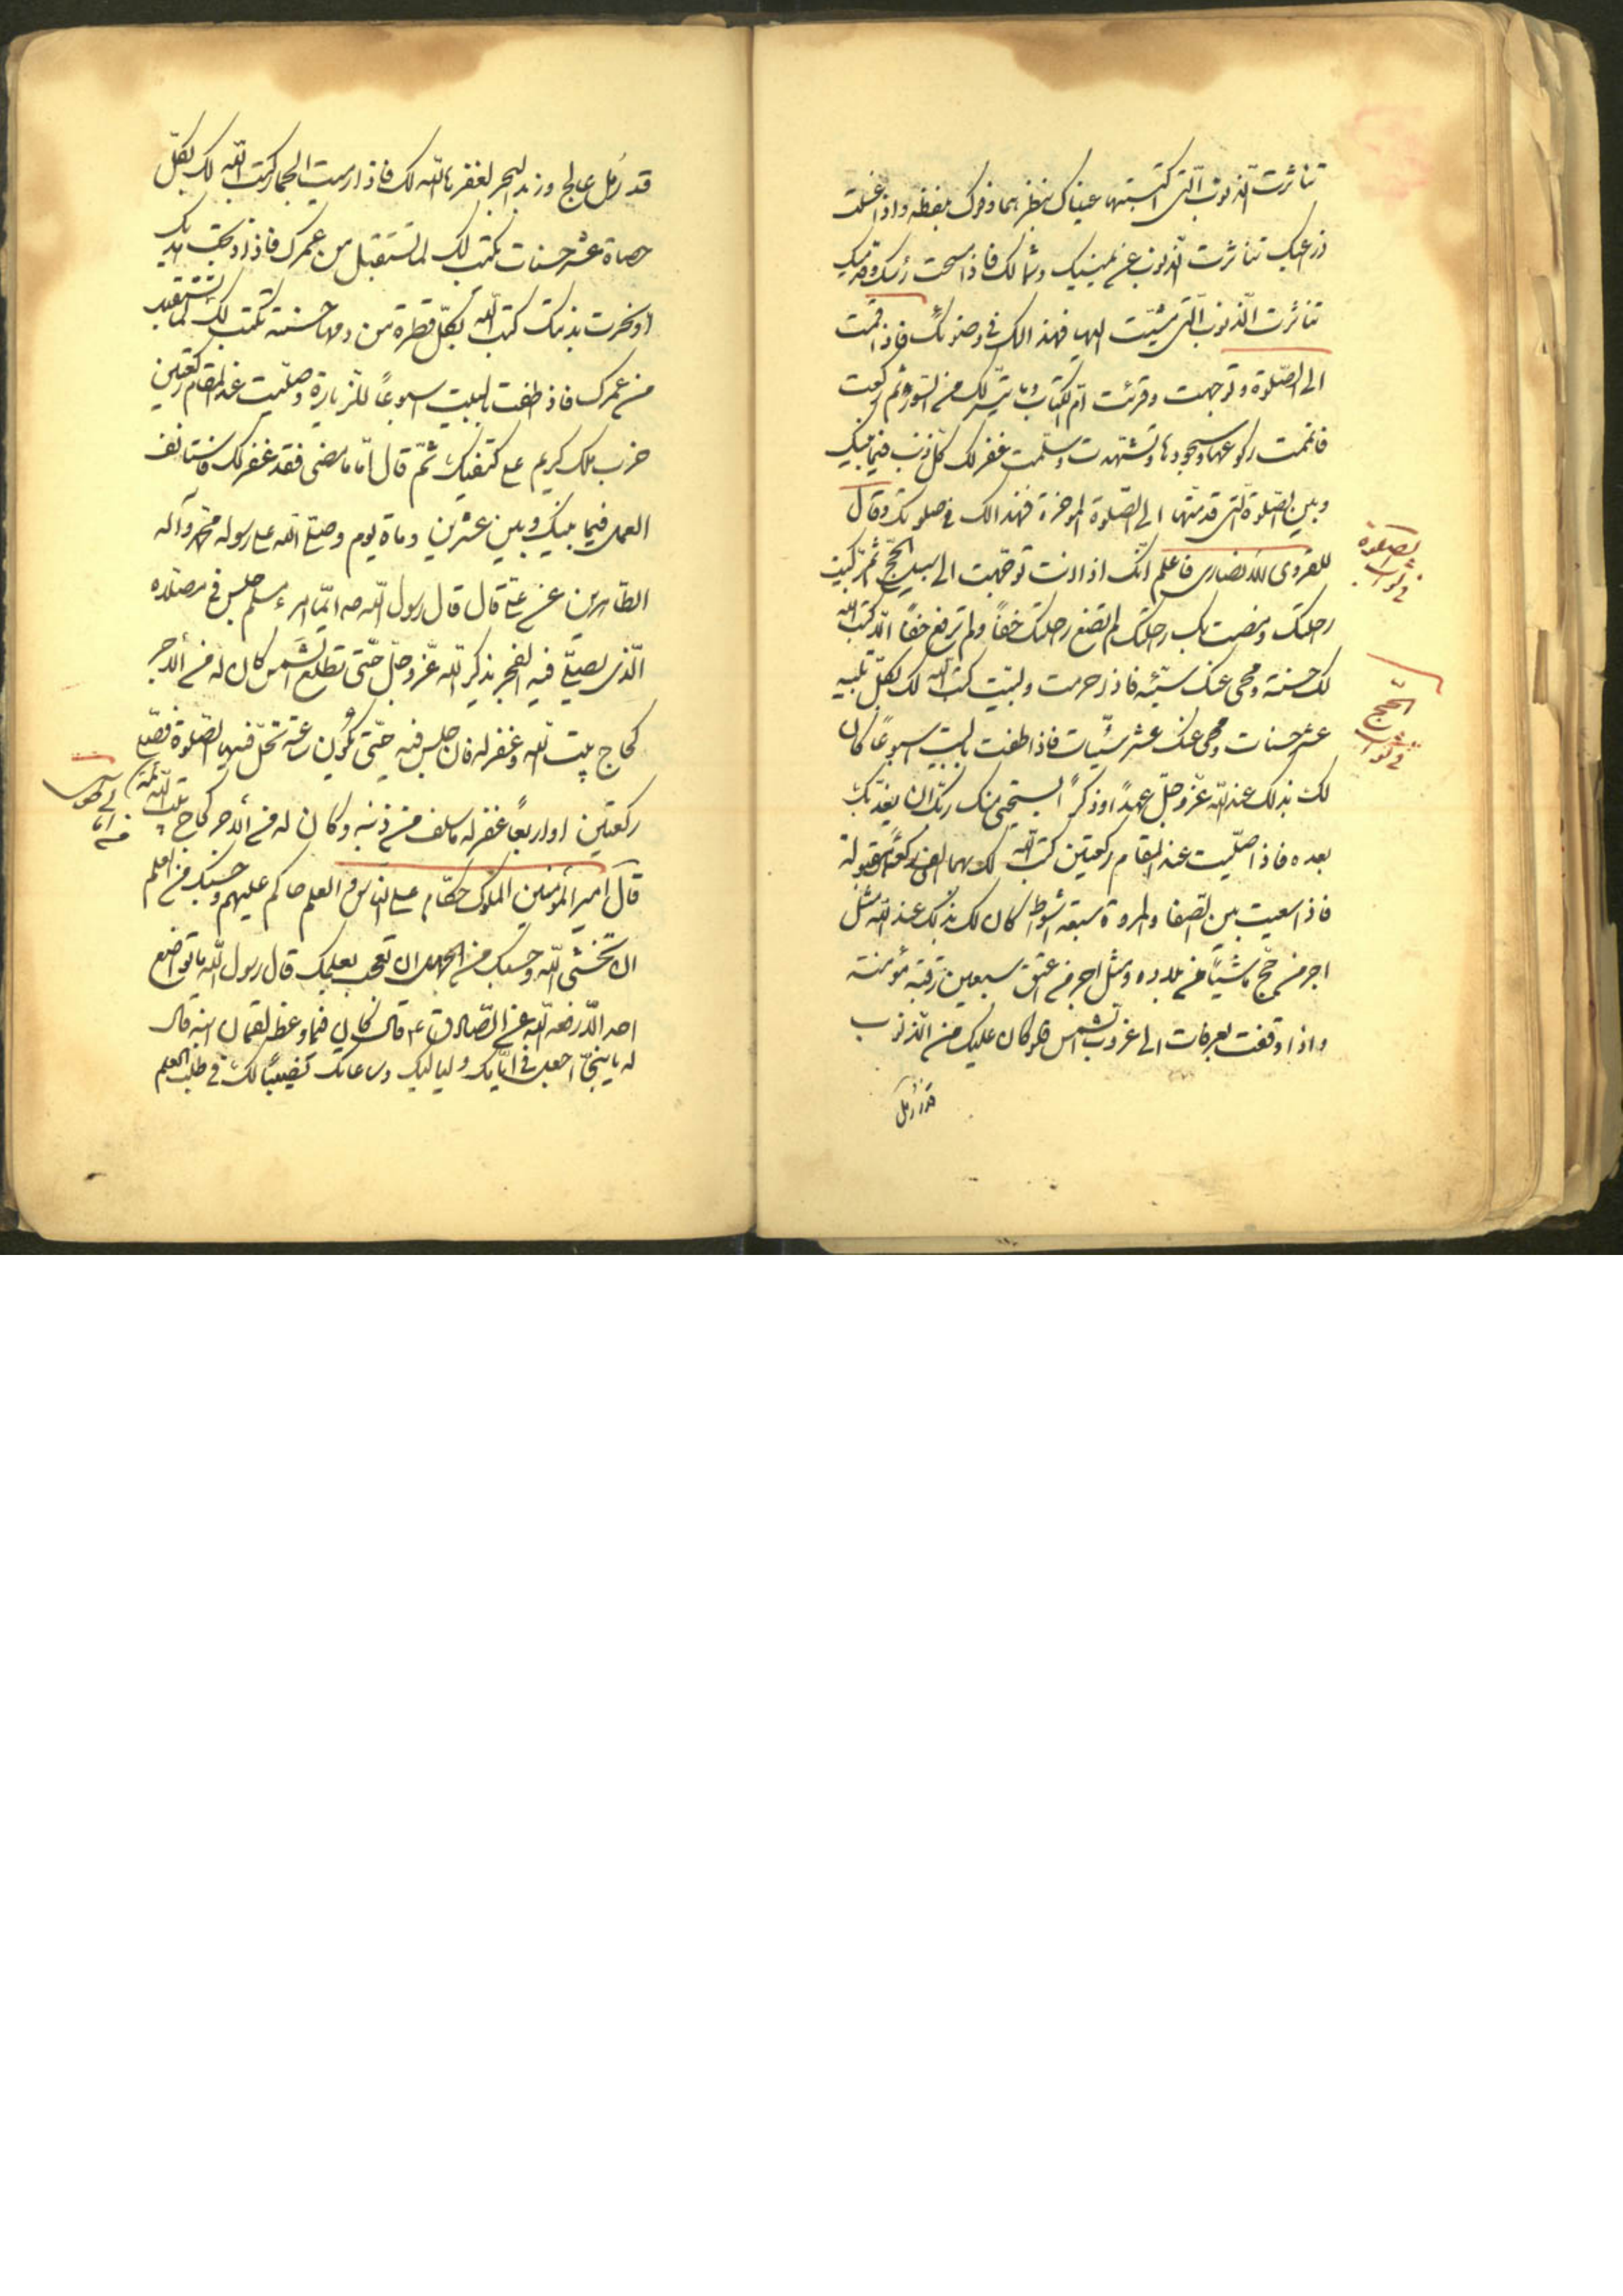 تناثرت الذنوب التى اكتسبتها عيناك بنظرهما وفوك بلفظه واذا غسلت
ذراعيك تناثرت الذنوب عن يمينك وشمالك فاذا مسحت رأسك وقدميك
تناثرت الذنوب التى مشيت اليها فهذا لك فى وضوئك فاذا قمت
الى الصلوة وتوجهت وقرئت ام الكتاب وما تيسر لك من السور ثم ركعت
فاتممت ركوعها وسجودها وتشهدت وسلمت غفر لك كل ذنب فيما بينك
وبين الصلوة التى قدمتها الى الصلوة المؤخرة فهذا لك فى صلوتك وقال
للانصارى فاعلم انك اذا انت توجهت الى سبيل الحج ثم ركبت
راحلتك ومضت بك راحلتك لم تضع راحلتك خفا ولم ترفع خفا الا كتب الله
لك حسنة ومحى عنك سيئة فاذا احرمت ولبيت كتب الله لك بكل تلبيه
عشر حسنات ومحى عنك عشر سيئات فاذا طفت بالبيت اسبوعا كان
لك بذلك عند الله عز وجل عهدا وذكرا يستحيى منك ربك ان يعذبك
بعده فاذا صليت عند المقام ركعتين كتب الله لك بهما الفى ركعة مقبولة
فاذا سعيت بين الصفا والمروة سبعة اشواط كان لك بذلك عند الله مثل
اجر من حج ماشيا من بلاده ومثل اجر من اعتق سبعين رقبة مؤمنة
واذا وقفت بعرفات الى غروب الشمس فلو كان عليك من الذنوب
قدر رمل
الصلوة
فى ثواب
الحج
فى ثواب
قدر رمل عالج وزبد البحر لغفرها الله لك فاذا رميت الجمار كتب الله لك بكل
حصاة عشر حسنات تكتب لك لما تستقبل من عمرك فاذا ذبحت هديك
او نحرت بدنتك كتب الله بكل قطرة من دمها حسنة تكتب لك لما تستقبل
من عمرك فاذا طفت بالبيت اسبوعا للزيارة وصليت عند المقام ركعتين
ضرب ملك كريم على كتفيك ثم قال اما ما مضى فقد غفر لك فاستانف
العمل فيما بينك وبين عشرين وماة يوم وصلى الله على رسوله محمد وآله
الطاهرين عن على قال قال رسول الله ص ايما امرء مسلم جلس فى مصلاه
الذى يصلى فيه الفجر يذكر الله عز وجل حتى تطلع الشمس كان له من الاجر
كحاج بيت الله وغفر له فان جلس فيه حتى تكون ساعة تحل فيها الصلوة فصلى
ركعتين او اربعا غفر له ما سلف من ذنبه وكان له من الاجر كحاج بيت الله
قال امير المؤمنين الملوك حكام على الناس والعلم حاكم عليهم وحسبك من العلم
ان تخشى الله وحسبك من الجهل ان تعجب بعلمك قال رسول الله ما تواضع
احد الا رفعه الله عن الصادق ع قال كان فيما وعظ لقمان ابنه قال
له يا بنى اجعل فى ايامك ولياليك وساعاتك نصيبا لك فى طلب العلم